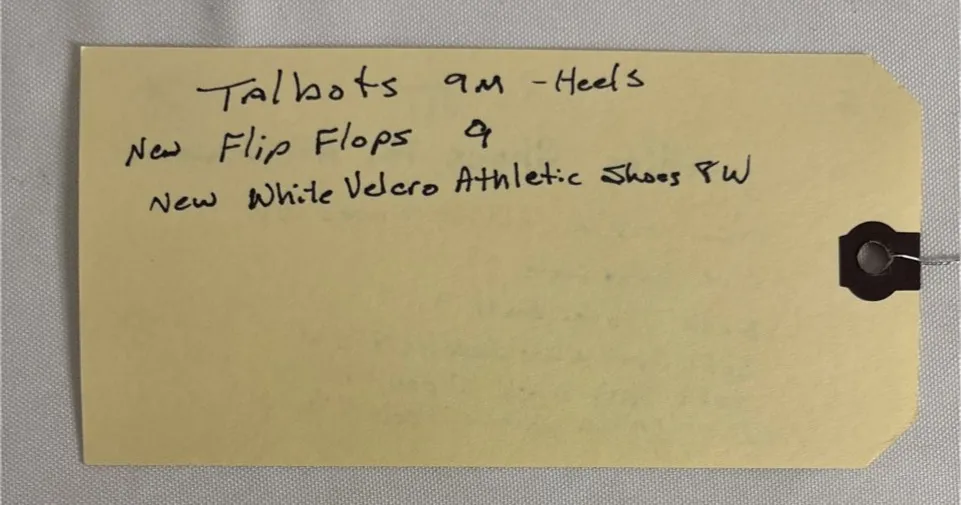 Talbots 9M - Heels
New Flip Flops 9
New White Velcro Athletic Shoes 8W